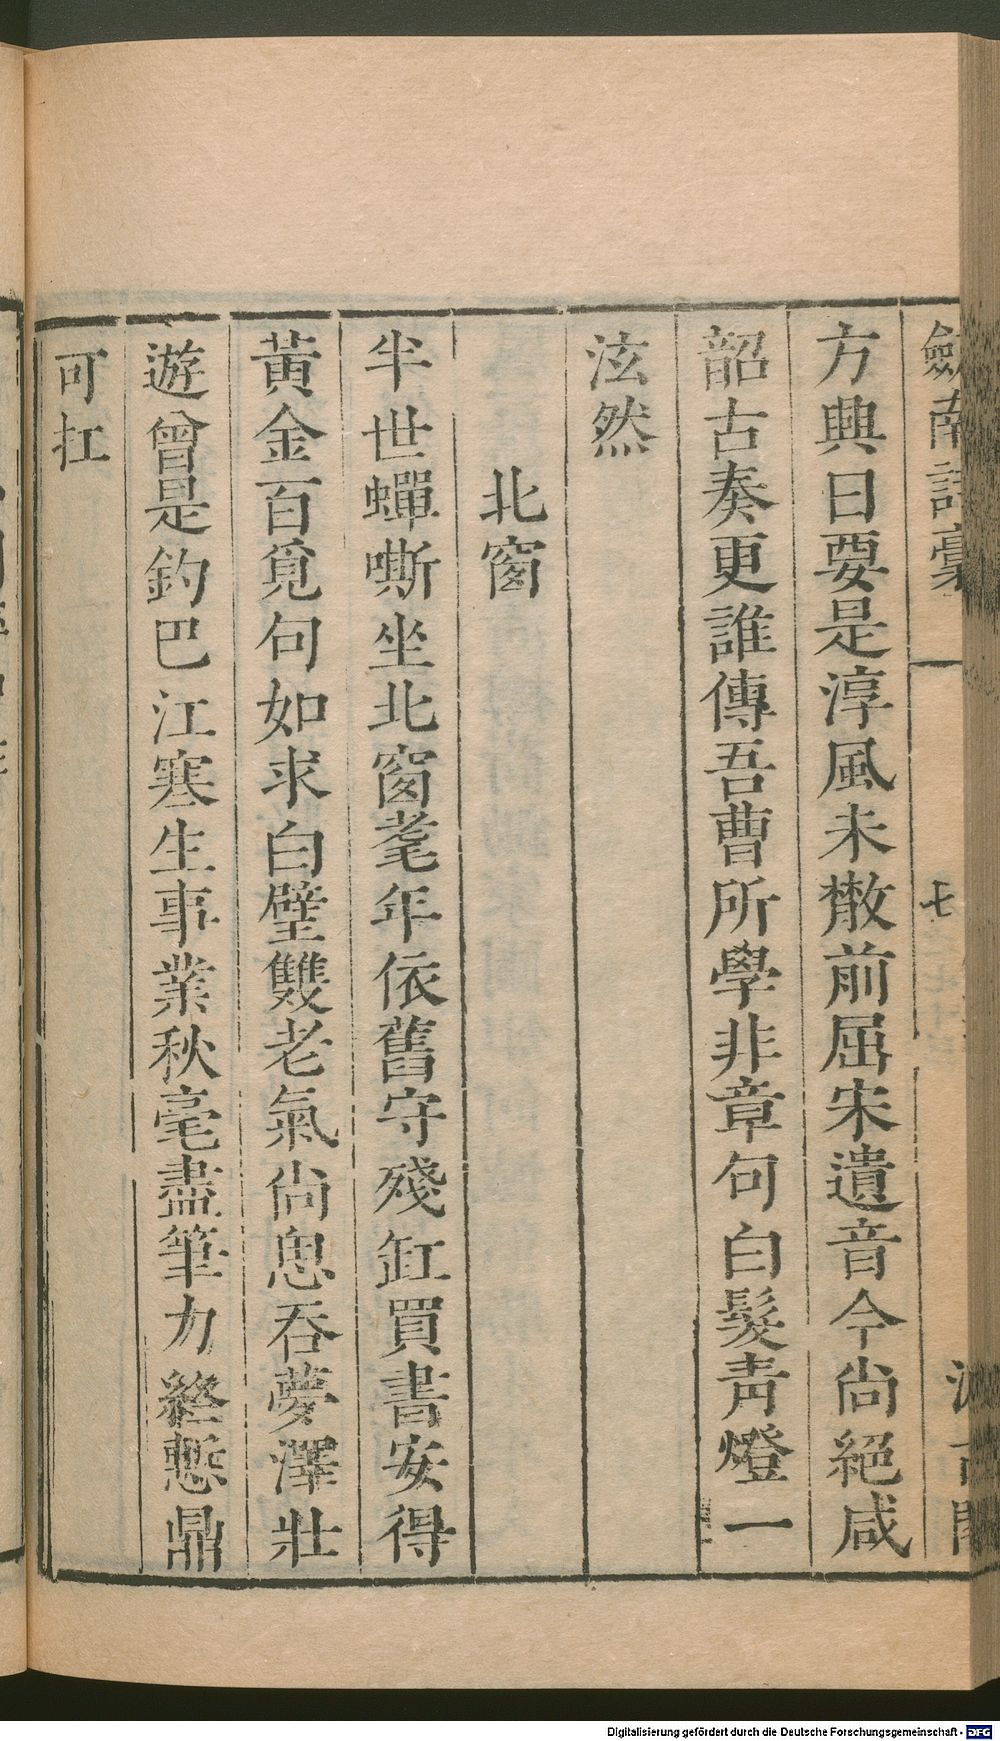 劒南詩稾
七
方興日要是淳風未散前屈宋遺音今尚絕咸
韶古奏更誰傳吾曹所學非章句白髮青燈一
泫然
北窗
半世蟬嘶坐北窗耄年依舊守殘缸買書安得
黃金百覓句如求白璧雙老氣尚思吞夢澤壯
遊曾是釣巴江寒生事業秋毫盡筆力終慙鼎
可扛
Digitalisierung gefördert durch die Deutsche Forschungsgemeinschaft - DFG